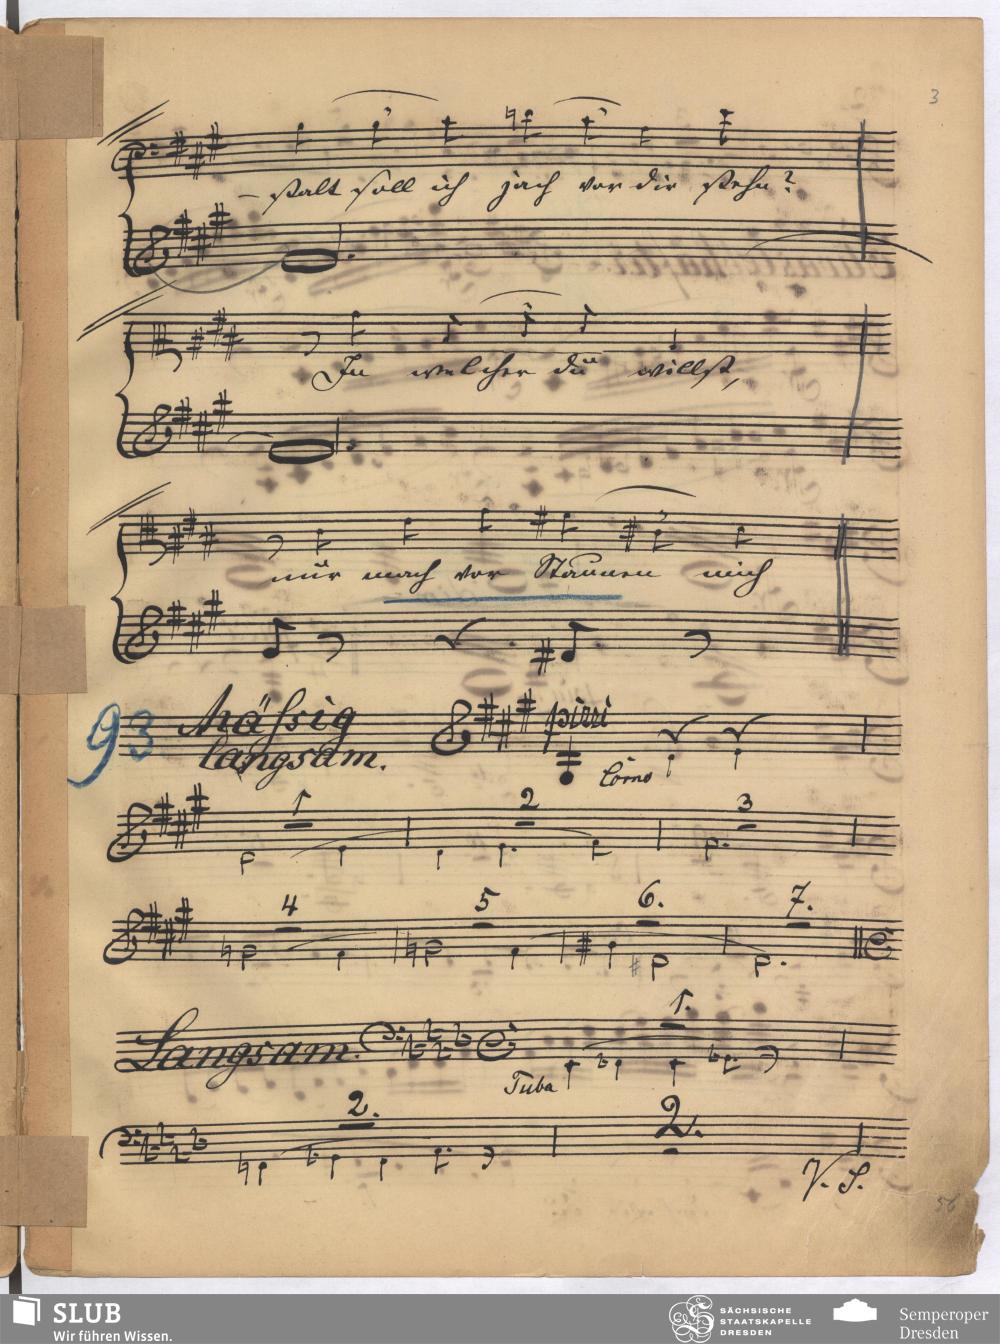 3
– stalt soll ich jach vor dir stehn?
In welcher du willst,
nur mach vor Staunen mich
93 Mäßig
langsam.
pizzi
Corno
1
2
3
4
5
6.
7.
Langsam.
1.
Tuba
2.
2.
V. S.
56
SLUB
Wir führen Wissen.
SÄCHSISCHE
STAATSKAPELLE
DRESDEN
Semperoper
Dresden